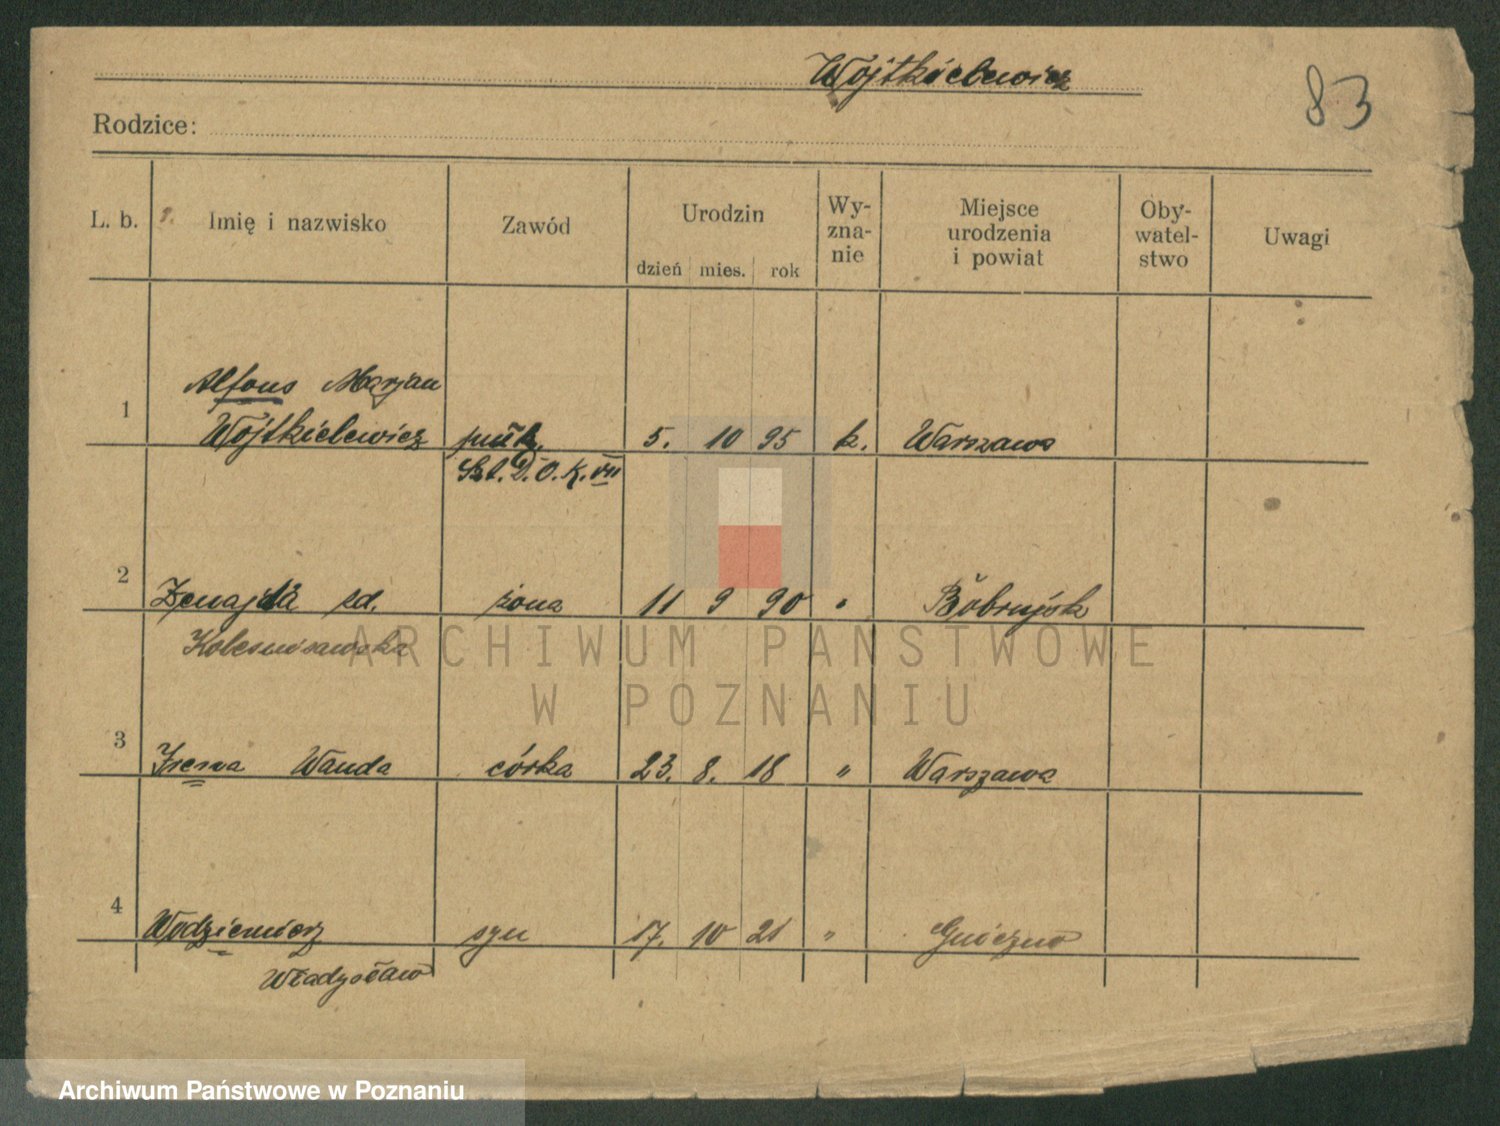 Wojtkielewicz
83
Rodzice:
L. b. Imię i nazwisko Zawód Urodzin Wy-zna-nie Miejsce urodzenia i powiat Oby-watel-stwo Uwagi
dzień mies. rok
1 Alfons Marjan
Wojtkielewicz 5. 10 95 k. Warszawa
Szt. D.O.K. VII
2 Zenajda zd. żona 11 9 90 " Bobrujsk
3 Irena Wanda córka 23. 8. 18 " Warszawa
4 Włodziemierz syn 17. 10 21 "
Władysław
ARCHIWUM PAŃSTWOWE
W POZNANIU
Archiwum Państwowe w Poznaniu